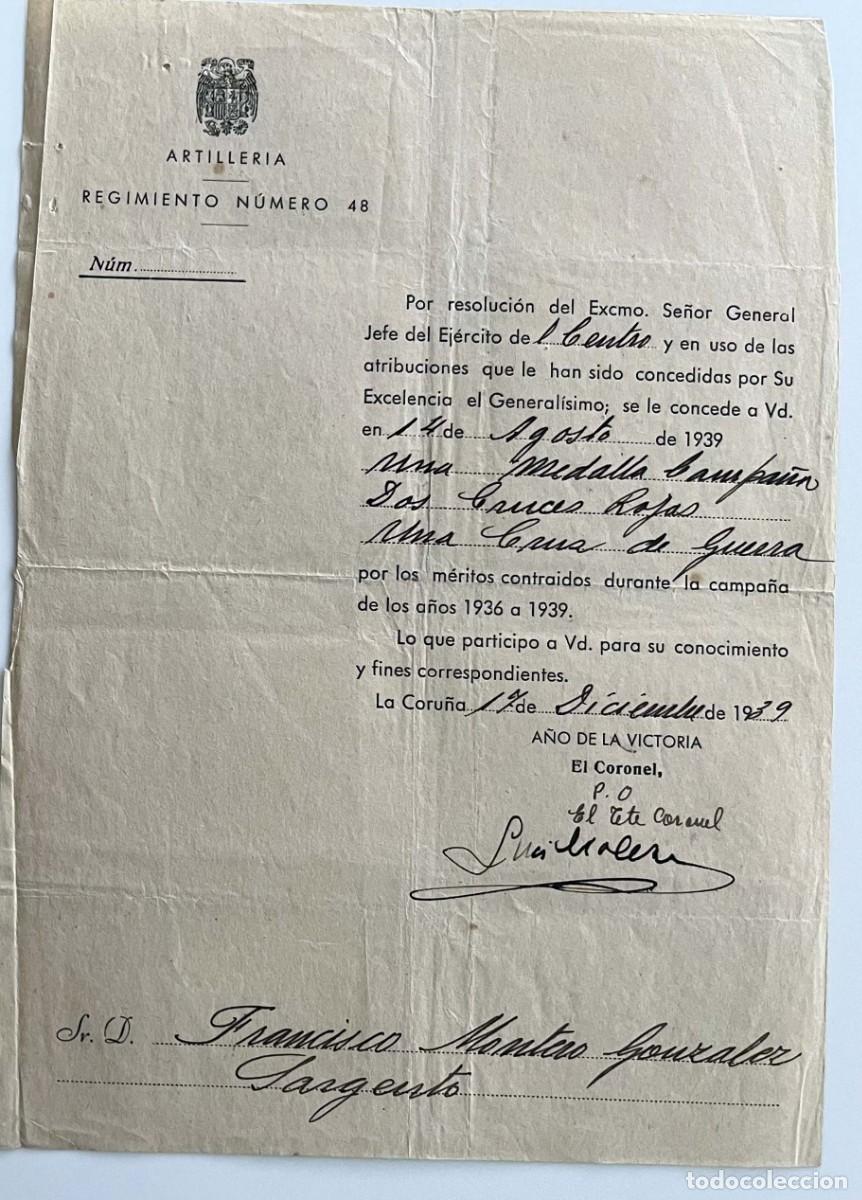 ARTILLERIA
REGIMIENTO NÚMERO 48
Núm.
Por resolución del Excmo. Señor General
Jefe del Ejército de l Centro y en uso de las
atribuciones que le han sido concedidas por Su
Excelencia el Generalísimo; se le concede a Vd.
en 14 de Agosto de 1939
Una Medalla Campaña
Dos Cruces Rojas
Una Cruz de Guerra
por los méritos contraidos durante la campaña
de los años 1936 a 1939.
Lo que participo a Vd. para su conocimiento
y fines correspondientes.
La Coruña 17 de Diciembre de 1939
AÑO DE LA VICTORIA
El Coronel,
P. O
El Tte Coronel
Luis
Sr. D. Francisco Montero Gonzalez
Sargento
todocoleccion